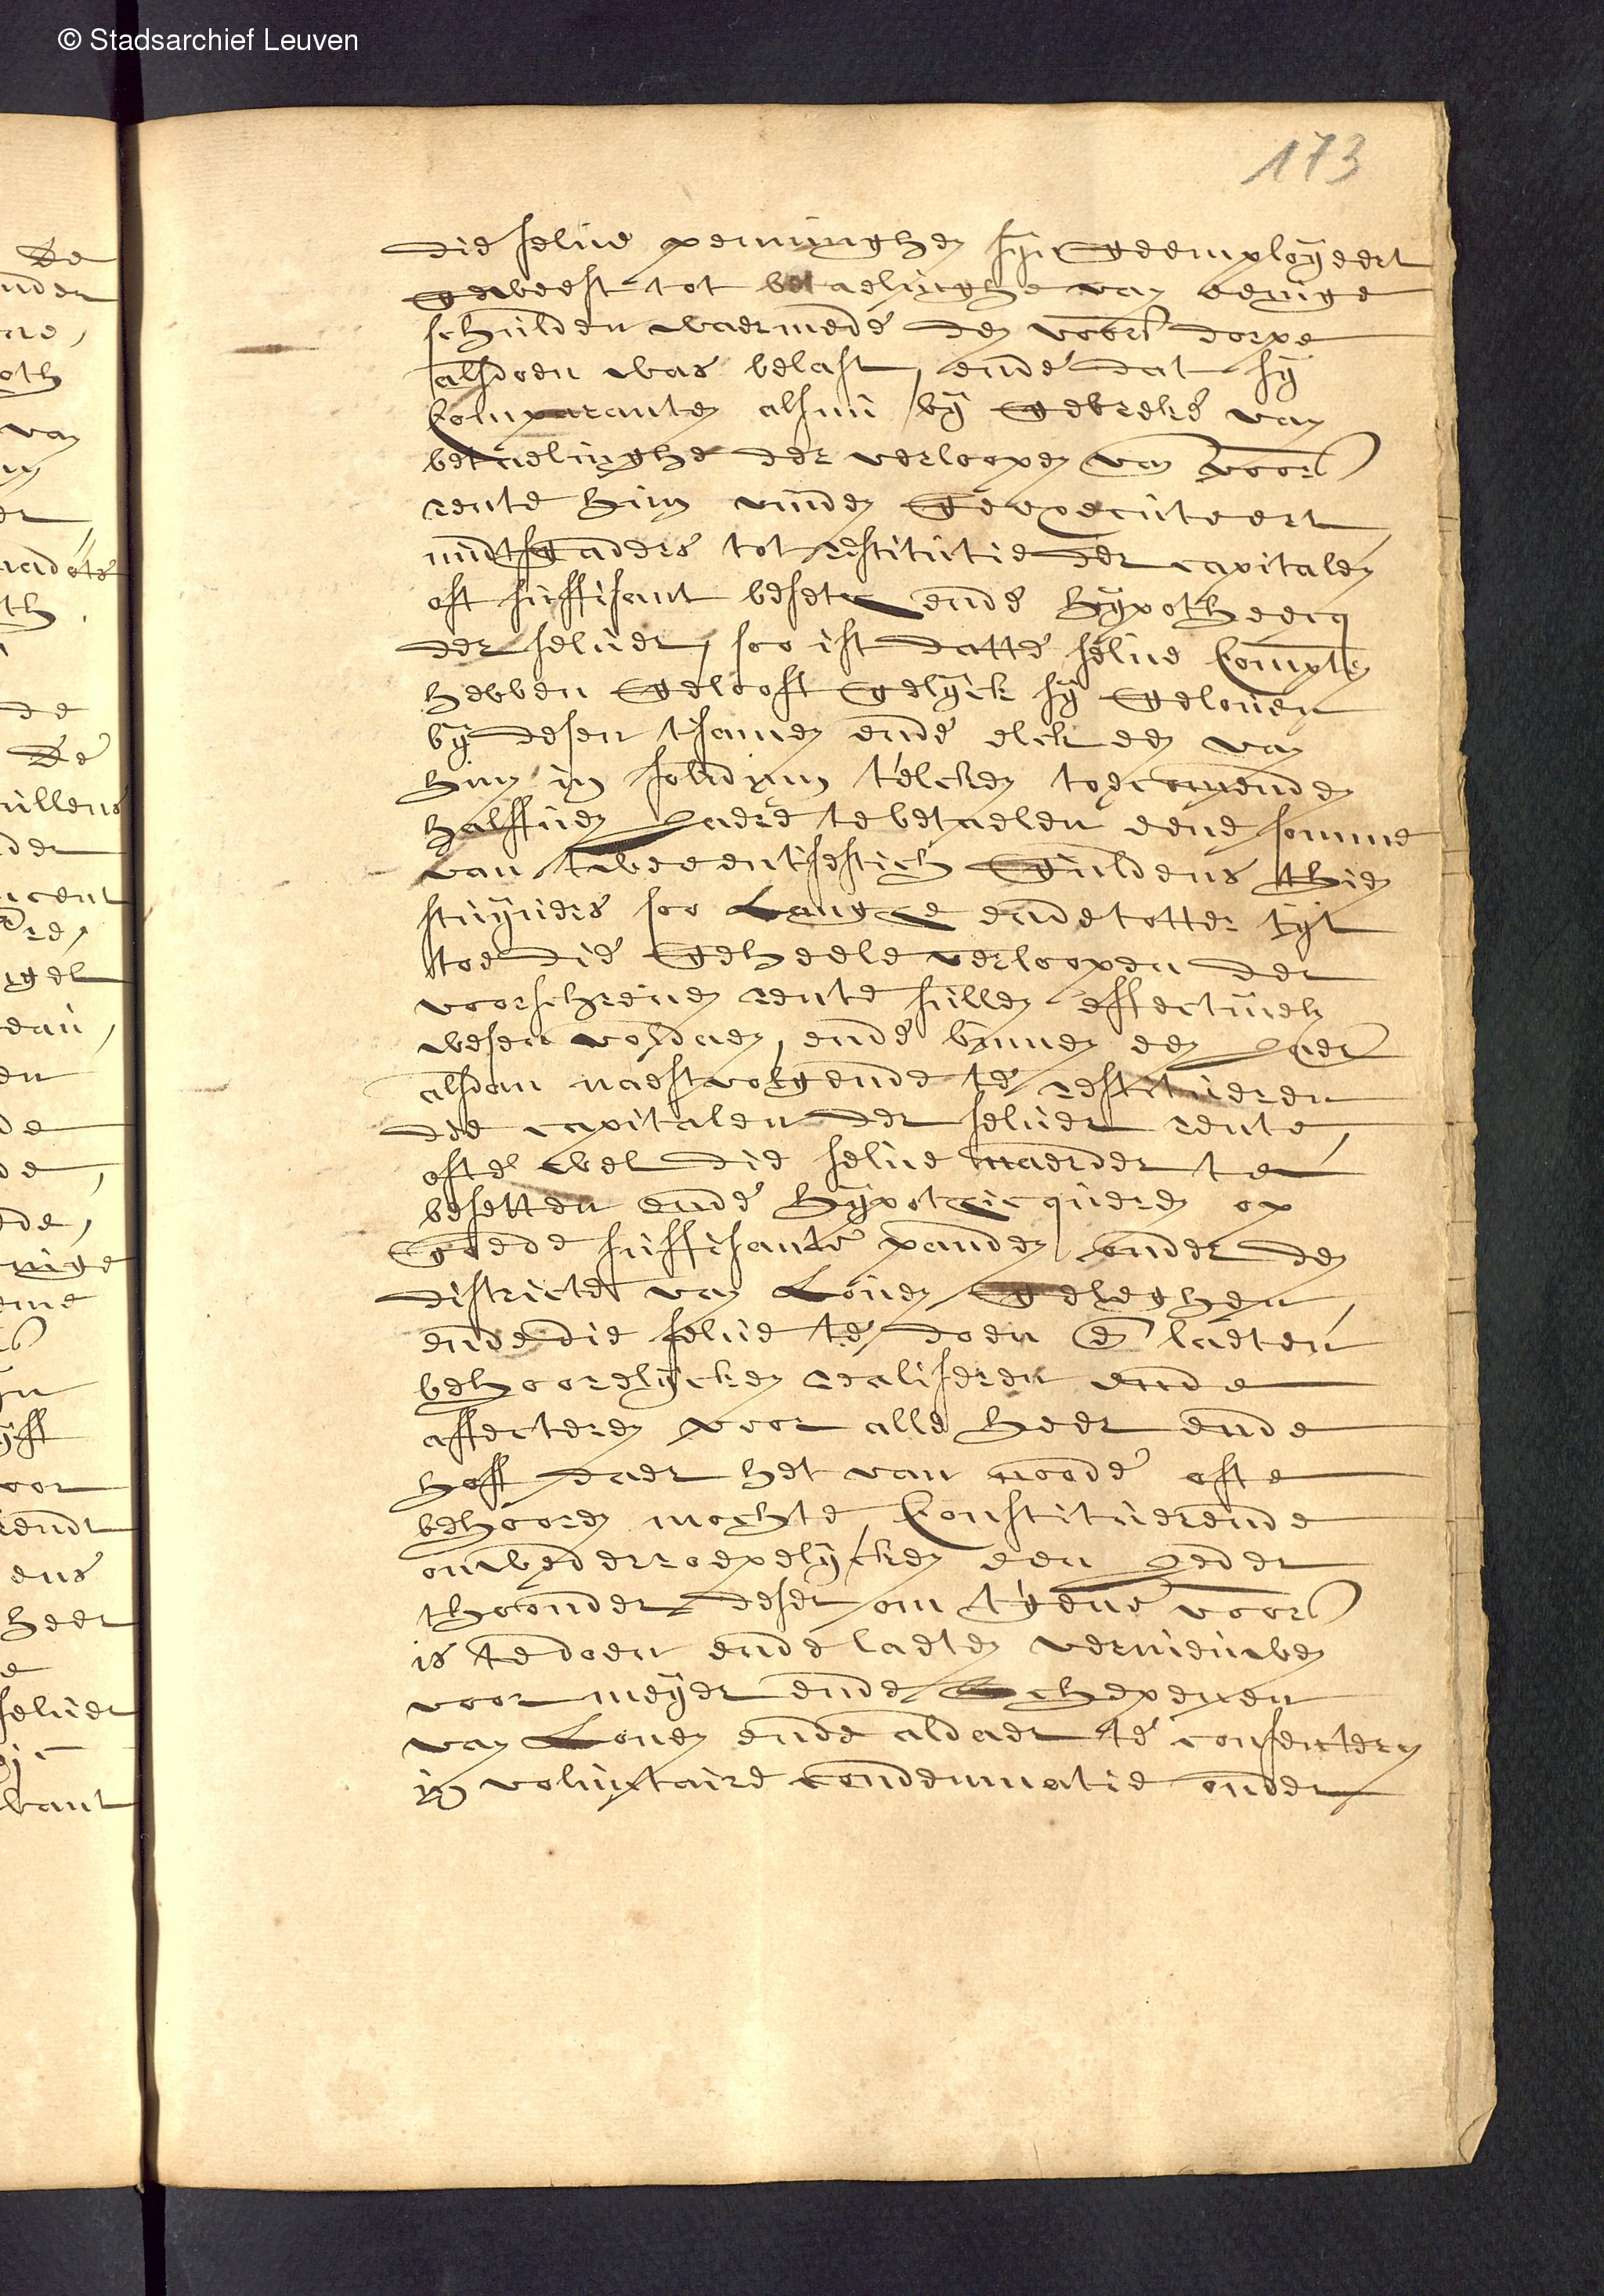 © Stadsarchief Leuven
173
die selue penninghen sijn geemployeert
geweest tot betaelinghe van eenige
schulden waermede den voors dorpe
alsdoen was belast, ende dat sij
Comparanten alsnu bij gebreke van
betaelinghe der verloopen van voors
rente hun vinden geexecuteert,
midtsgaders tot restitutie der capitalen
oft suffisant besete ende hypotheecq
der seluer, soo ist datte selue Compten
hebben geloeft gelijck sij gelouen
bij desen tsamen ende elck een van
hun in solidum t'elcken toecomenden
halffuen jaere te betaelen eene somme
van tweentsestich guldens thien
stuyuers soo lange ende totter tijt
toe die geheele verloopen der
voorschreuen rente sullen effectiuel
wesen voldaen, ende binnen een jaer
alsdan naestvolgende te restitueren
die capitalen der seluer rente,
ofte wel die selue naerder te
besetten ende hypotecqueren op
goede suffisante panden onder den
districte van Louen geleghen,
ende die selue te doen en laeten
behoorelijcken realiseren ende
affecteren voor alle heer ende
hoff daer het van noode ofte
behooren mochte, Constituerende
onwederroepelijcken een jeder
thoonder deser om t'gene voors
is te doen ende laeten vernieuwen
voor meyer ende schepenen
van Louen ende aldaer te consenteren
in voluntaire condemnatie onder